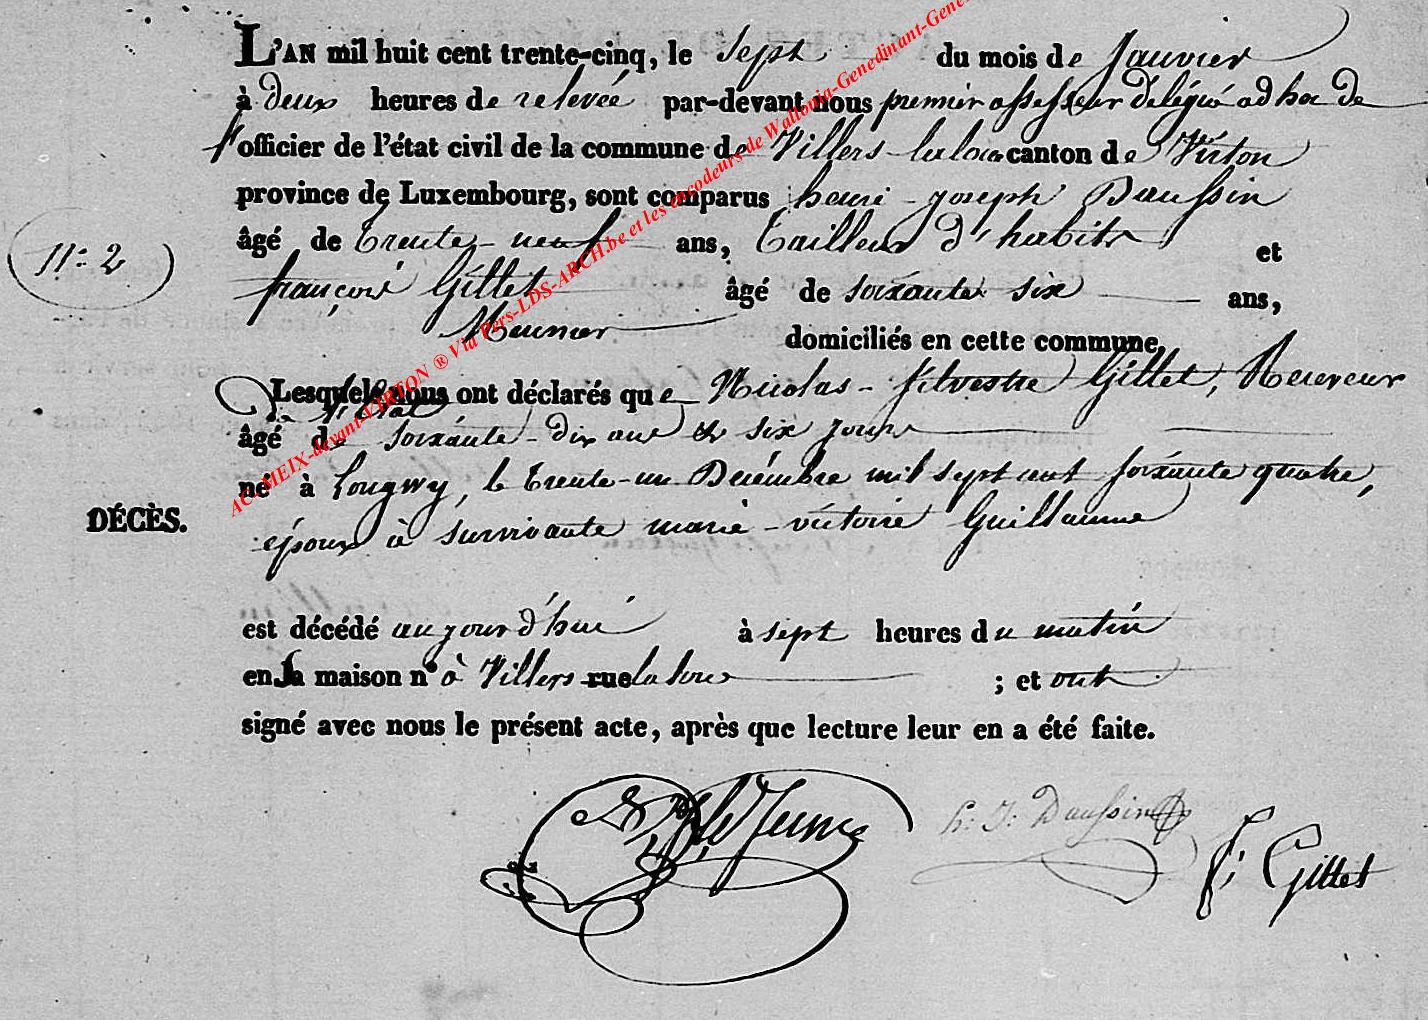 L'AN mil huit cent trente-cinq, le sept du mois de Janvier
à deux heures de relevée par-devant nous premier assesseur délégué ad hoc de
l'officier de l'état civil de la commune de Villers-la loue canton de Virton
province de Luxembourg, sont comparus henri-joseph Daussin
âgé de trente-neuf ans, tailleur d'habits et
N.° 2
françois Gillet âgé de soixante six ans,
Meunier domiciliés en cette commune,
Lesquels nous ont déclarés que Nicolas-Silvestre Gillet, Receveur
de l'état
âgé de soixante-dix ans et six jours
né à Longwy, le trente-un Décembre mil sept cent soixante quatre,
DÉCÈS.
époux à survivante marie-victoire Guillaume
est décédé aujourd'hui à sept heures du matin
en sa maison n° à Villers rue la loue ; et ont
signé avec nous le présent acte, après que lecture leur en a été faite.
le Jeune
h: J: Daussin
F: Gillet
AC-MEIX-devant-VIRTON ® Via Pers-LDS-ARCH.be et les encodeurs de Wallonia-Genedinant-Gene